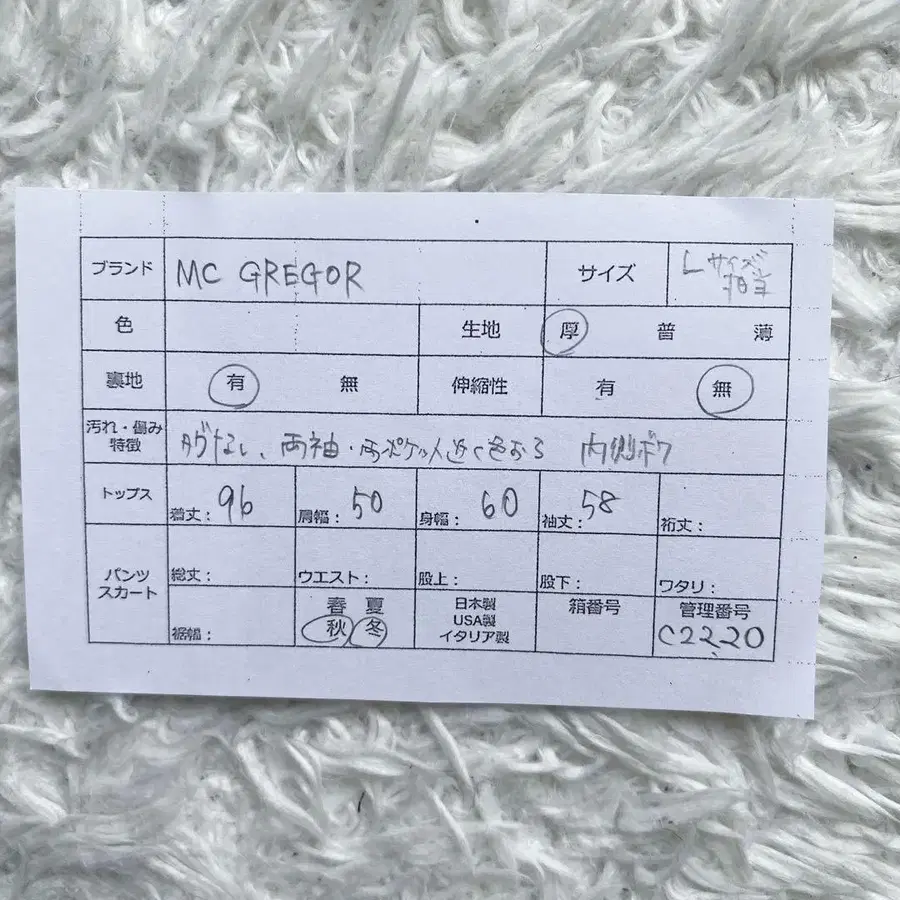 ブランド MC GREGOR サイズ Lサイズ
相当
色 生地 厚 普 薄
裏地 有 無 伸縮性 有 無
汚れ・傷み
特徴 タグなし、両袖・両ポケット近く 内側ポケ
トップス 着丈: 96 肩幅: 50 身幅: 60 袖丈: 58 裄丈:
パンツ
スカート 総丈: ウエスト: 股上: 股下: ワタリ:
裾幅: 春 夏
秋 冬
日本製
USA製
イタリア製
箱番号 管理番号
C2220